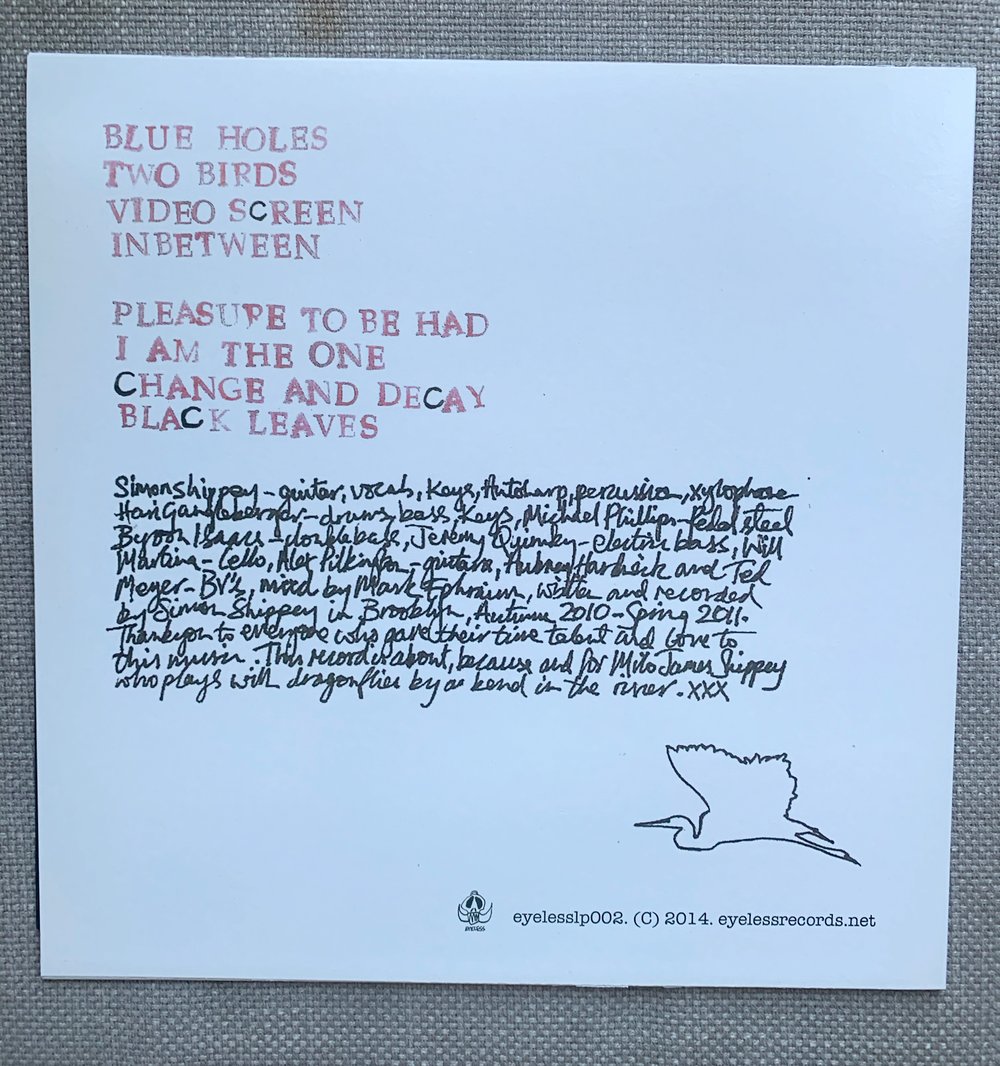 BLUE HOLES
TWO BIRDS
VIDEO SCREEN
INBETWEEN
PLEASURE TO BE HAD
I AM THE ONE
CHANGE AND DECAY
BLACK LEAVES
Simon Shippey - guitar, vocals, Keys, Autoharp, percussion, xylophone
Hari Ganglberger - drums, bass, Keys, Michael Phillips - Pedal steel
Byron Isaacs - double bass, Jeremy - electric bass, Will
Martina - Cello, Alex Pilkington - guitars, Aubrey and Ted
Meyer - BV's, mixed by Mark Ephraim, written and recorded
by Simon Shippey in Brooklyn, Autumn 2010 - Spring 2011.
Thankyou to everyone who gave their time talent and love to
this music. This record is about, because and for Milo James Shippey
who plays with dragonflies by a bend in the river. xxx
EYELESS
eyelesslp002. (C) 2014. eyelessrecords.net